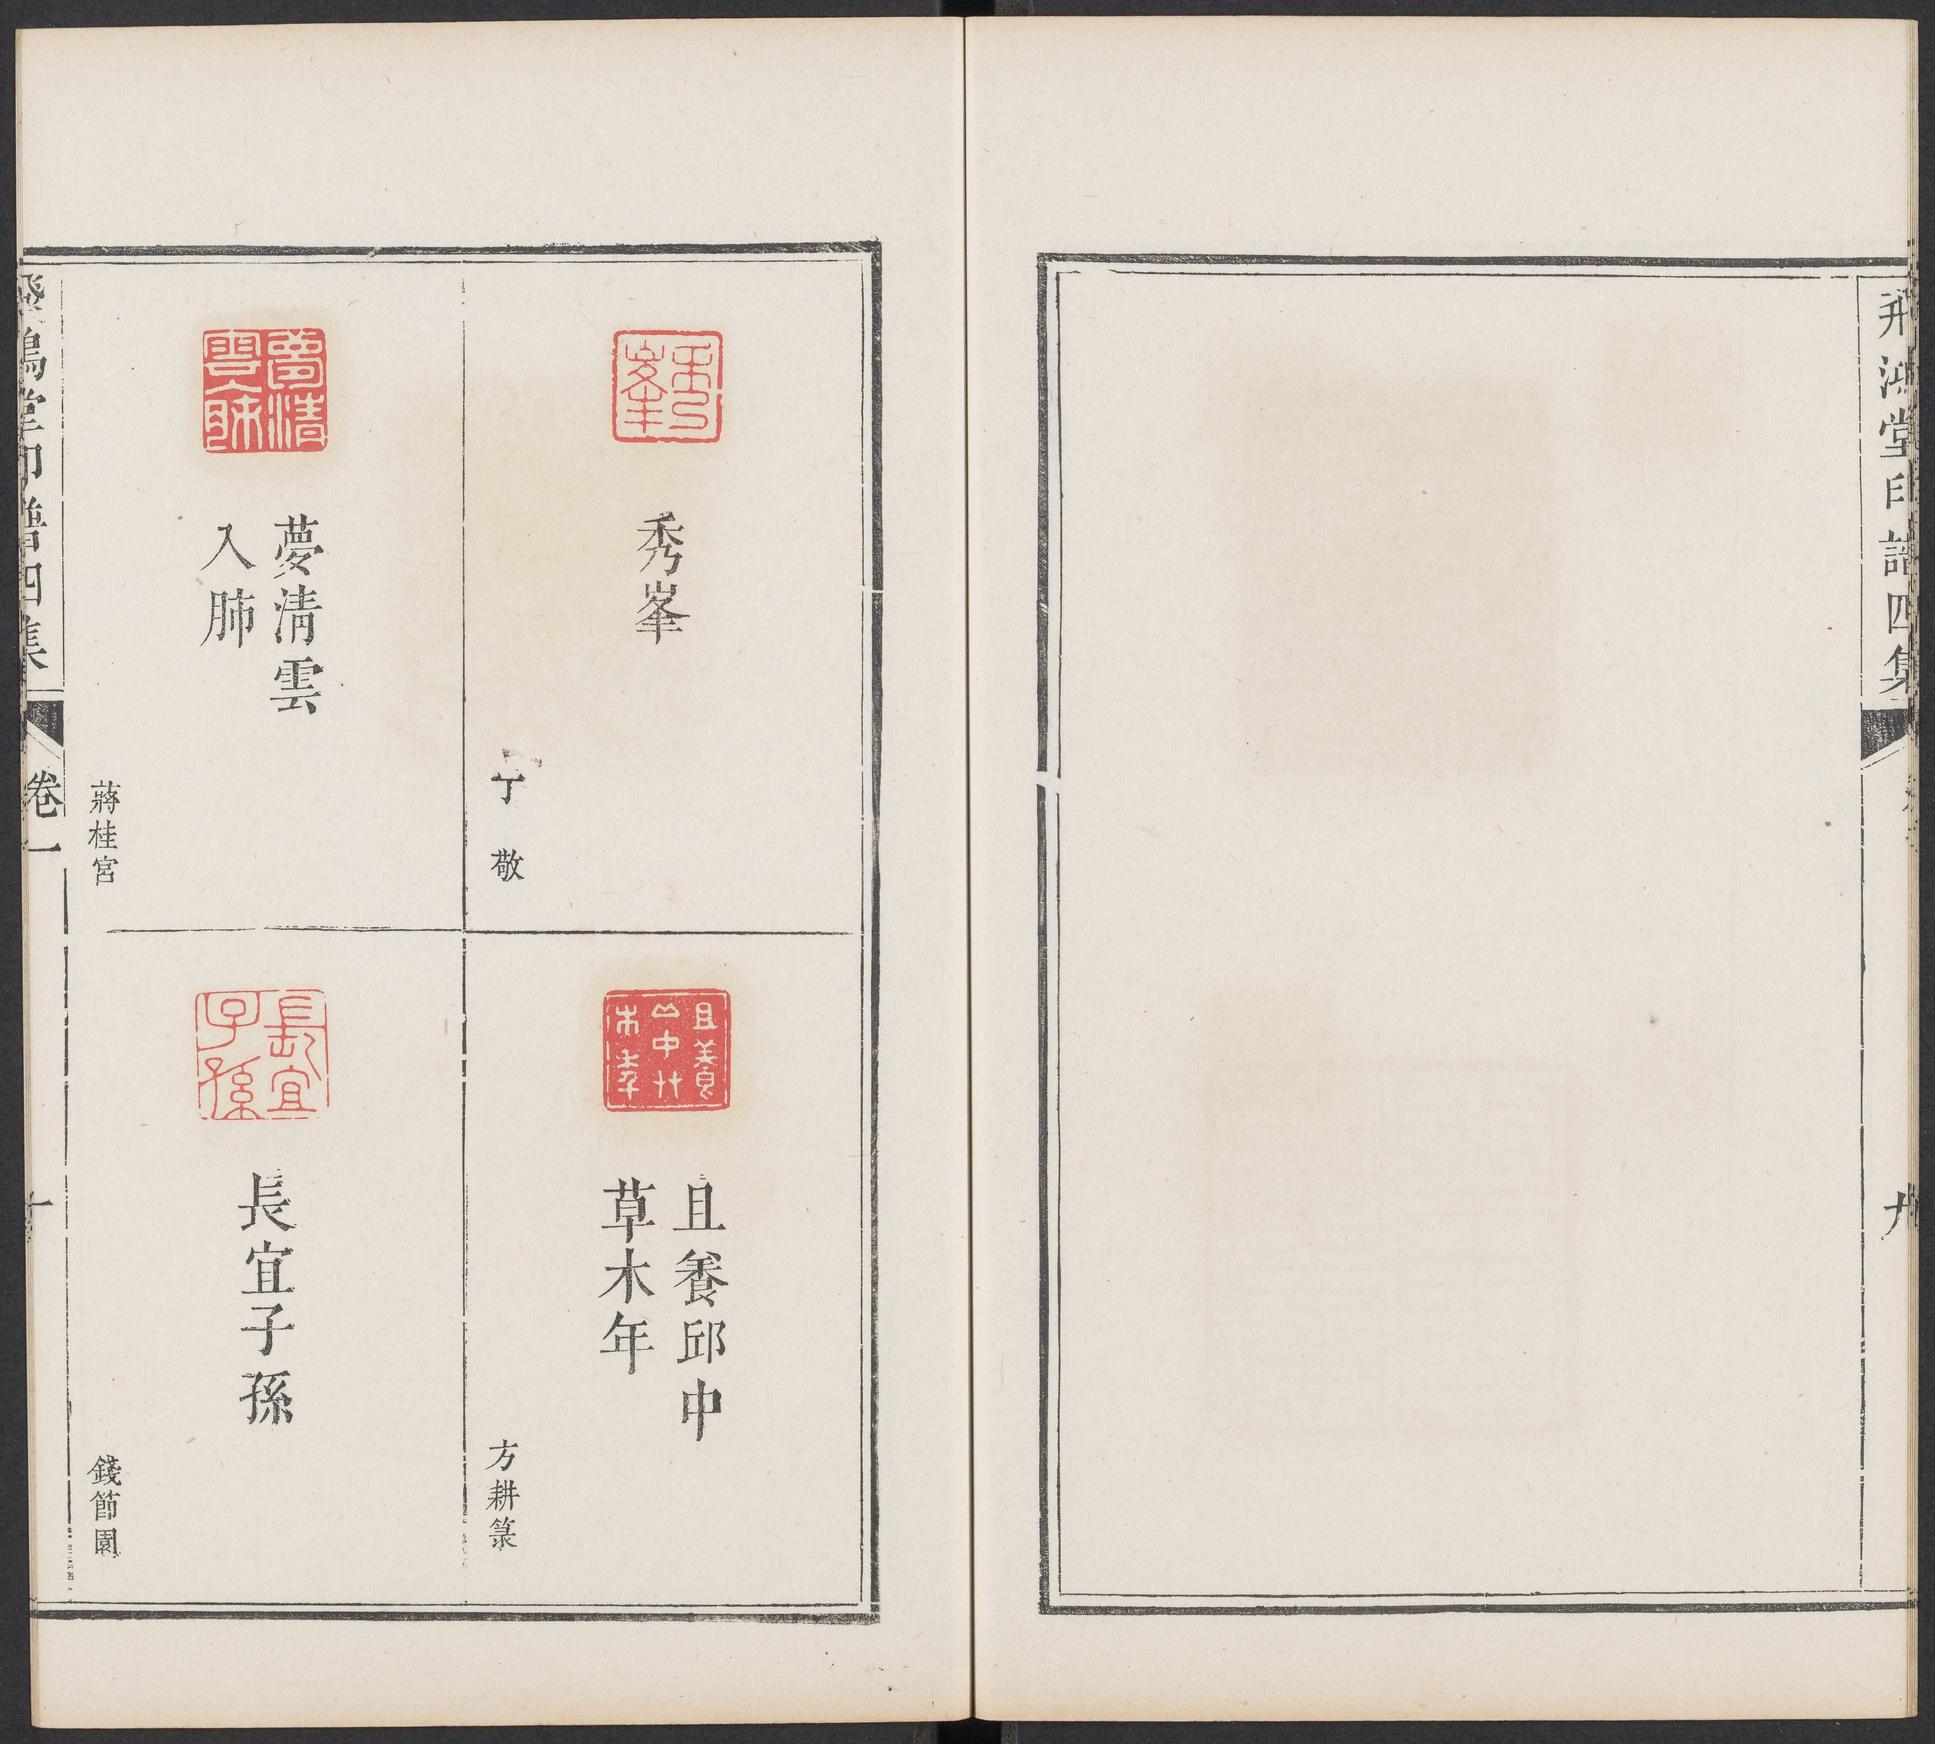 飛鴻堂印譜四集
九
秀峯
秀峯
丁敬
且養邱中草木年
且養邱中
草木年
方耕篆
夢清雲入肺
夢清雲
入肺
蔣桂宮
長宜子孫
長宜子孫
錢節園
飛鴻堂印譜四集
卷一
十